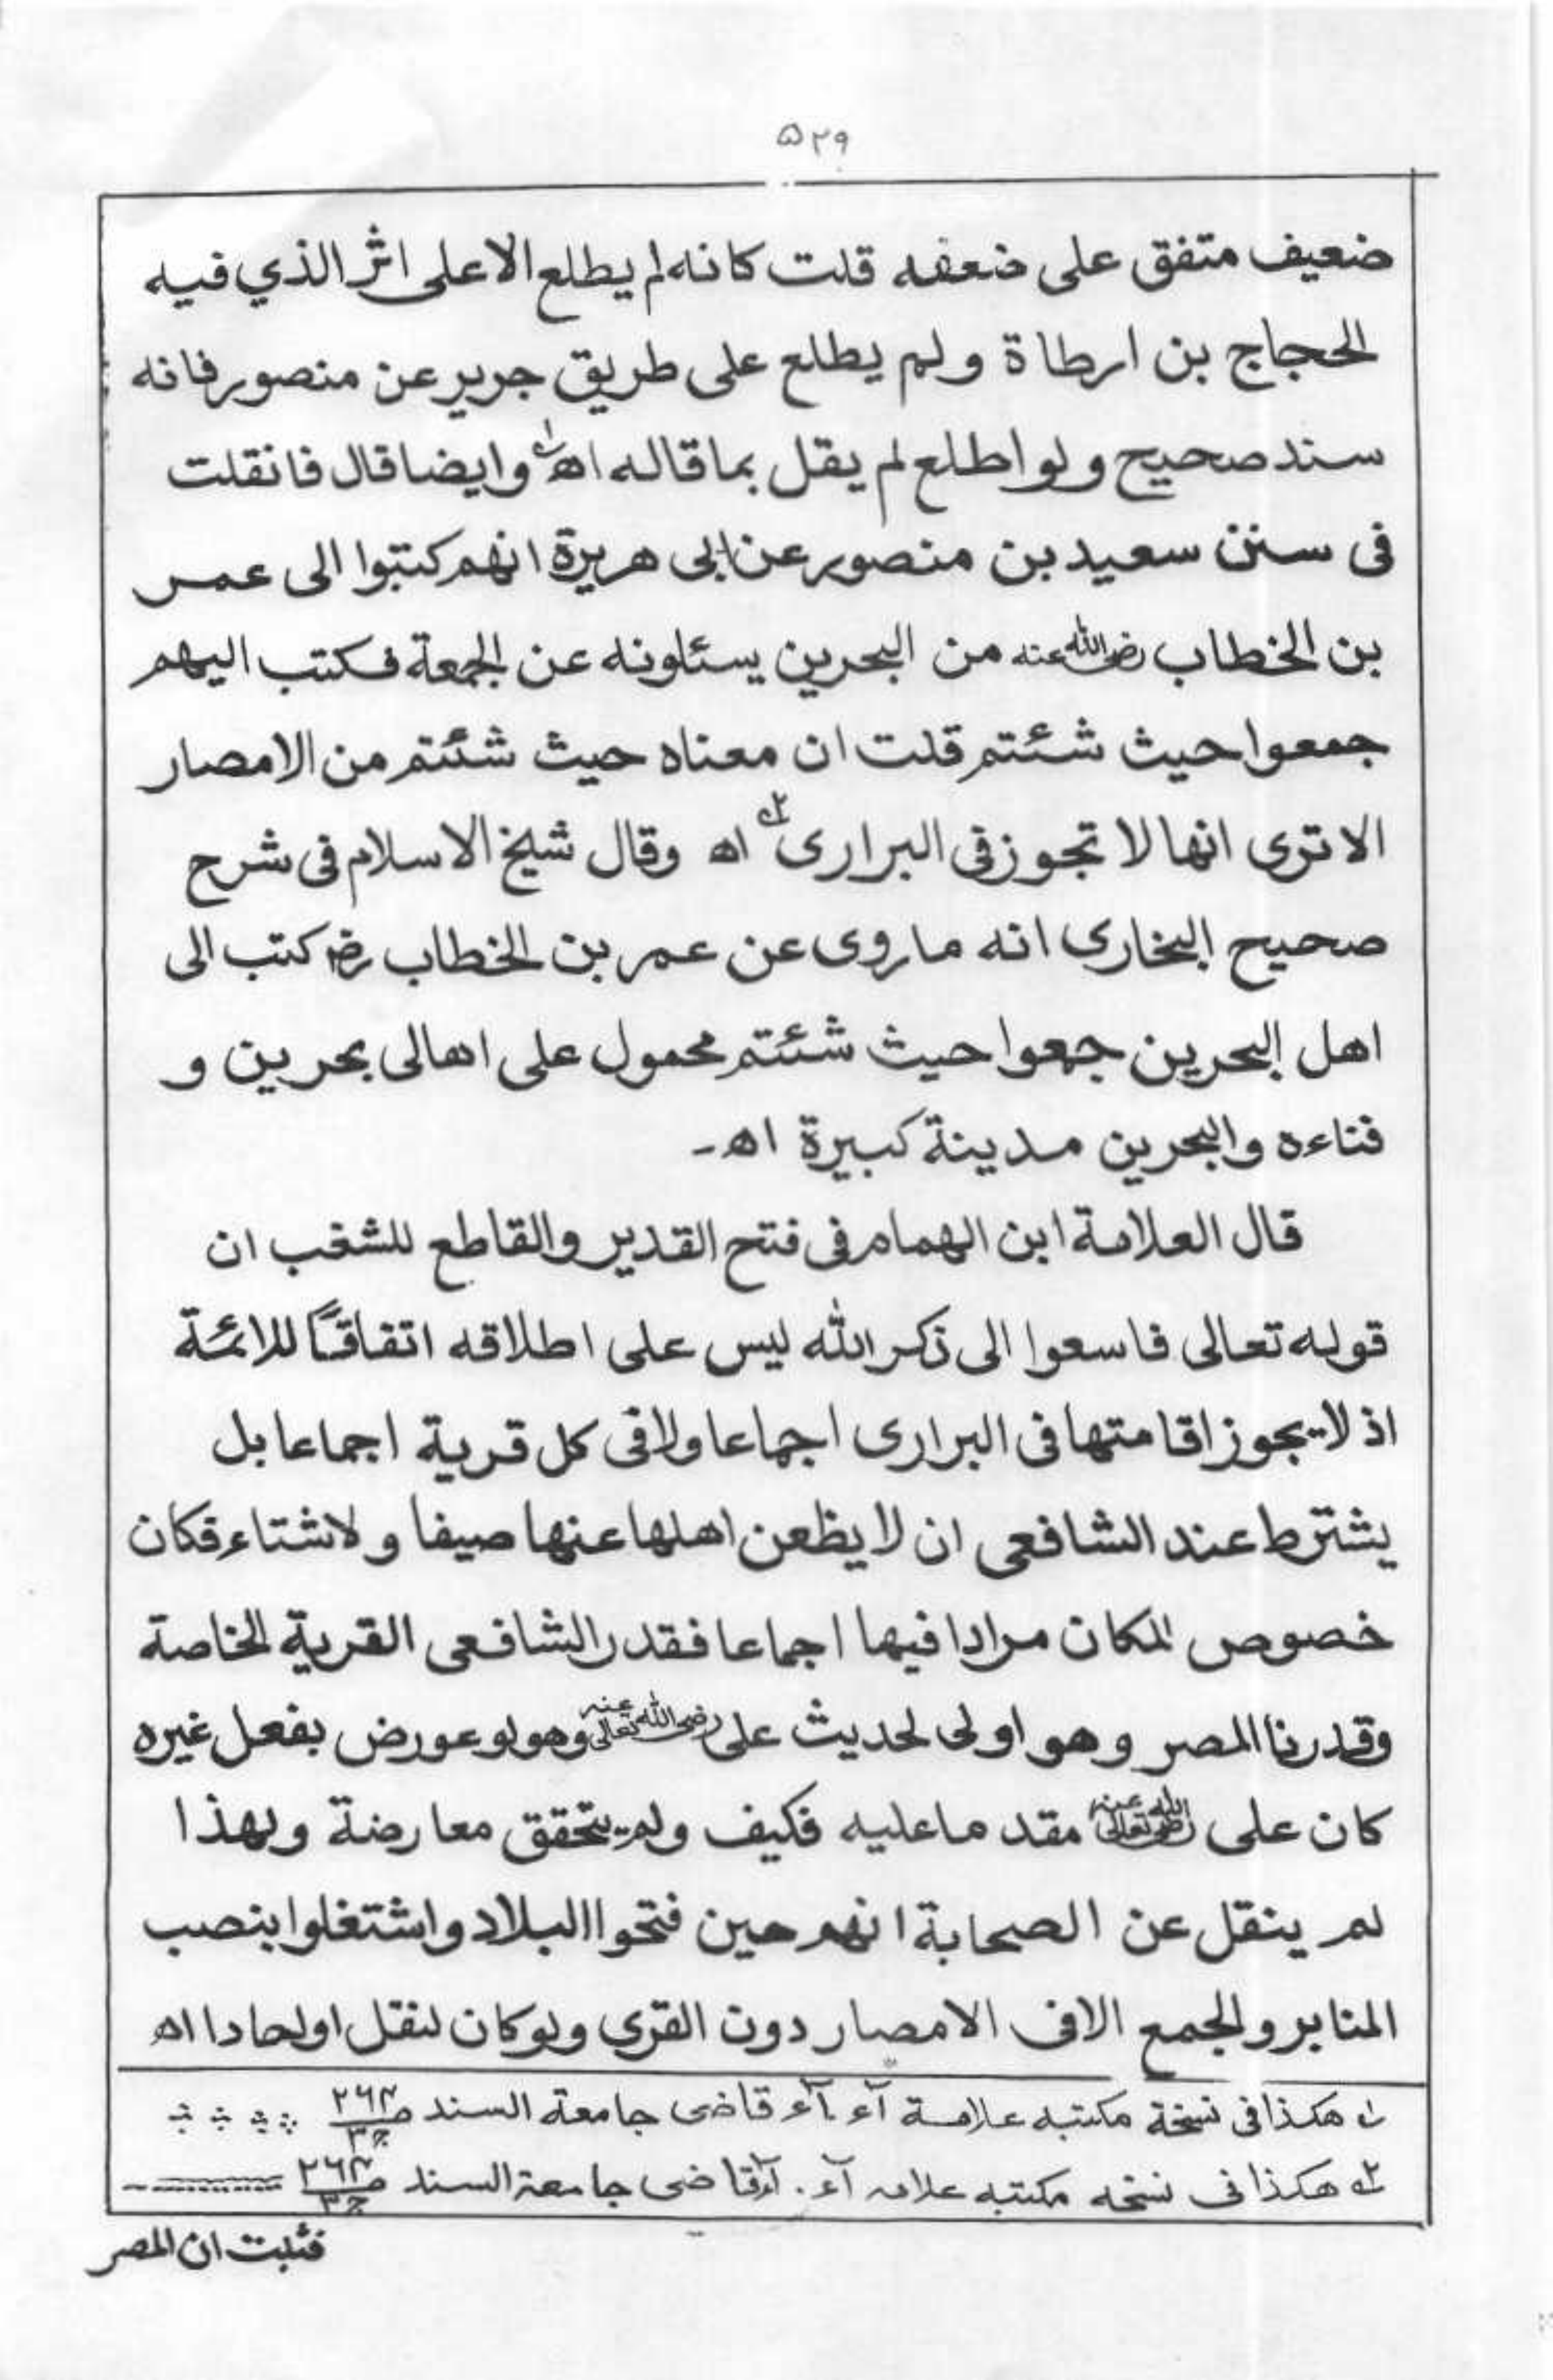 ۵۲۹
ضعيف متفق على ضعفه قلت كانه لم يطلع الا على اثر الذي فيه
الحجاج بن ارطاة ولم يطلع على طريق جرير عن منصور فانه
سند صحيح ولو اطلع لم يقل بما قاله اھ ۱ وايضا قال فانقلت
فى سنن سعيد بن منصور عن ابى هريرة انهم كتبوا الى عمر
بن الخطاب رضى الله عنه من البحرين يسئلونه عن الجمعة فكتب اليهم
جمعوا حيث شئتم قلت ان معناه حيث شئتم من الامصار
الا ترى انها لا تجوز فى البرارى ۲ اھ وقال شيخ الاسلام فى شرح
صحيح البخارى انه ما روى عن عمر بن الخطاب رض كتب الى
اهل البحرين جمعوا حيث شئتم محمول على اهالى بحرين و
فناءه والبحرين مدينة كبيرة اھ۔
قال العلامة ابن الهمام فى فتح القدير والقاطع للشغب ان
قوله تعالى فاسعوا الى ذكر الله ليس على اطلاقه اتفاقًا للائمة
اذ لا يجوز اقامتها فى البرارى اجماعا ولا فى كل قرية اجماعا بل
يشترط عند الشافعى ان لا يظعن اهلها عنها صيفا ولا شتاء فكان
خصوص المكان مرادا فيها اجماعا فقدر الشافعى القرية الخاصة
وقدرنا المصر وهو اولى لحديث على رضى الله تعالى عنه وهو لو عورض بفعل غيره
كان على رضى الله تعالى عنه مقدما عليه فكيف ولم يتحقق معارضة ولهذا
لم ينقل عن الصحابة انهم حين فتحوا البلاد واشتغلوا بنصب
المنابر والجمع الا فى الامصار دون القرى ولو كان لنقل اولحادا اھ
۱ هكذا فى نسخة مكتبه علامة آء آء قاضى جامعة السند ص۲۶۴ ج۳
۲ هكذا فى نسخه مكتبه علامه آء. آء قاضى جامعة السند ص۲۶۴ ج۳
فثبت ان المصر